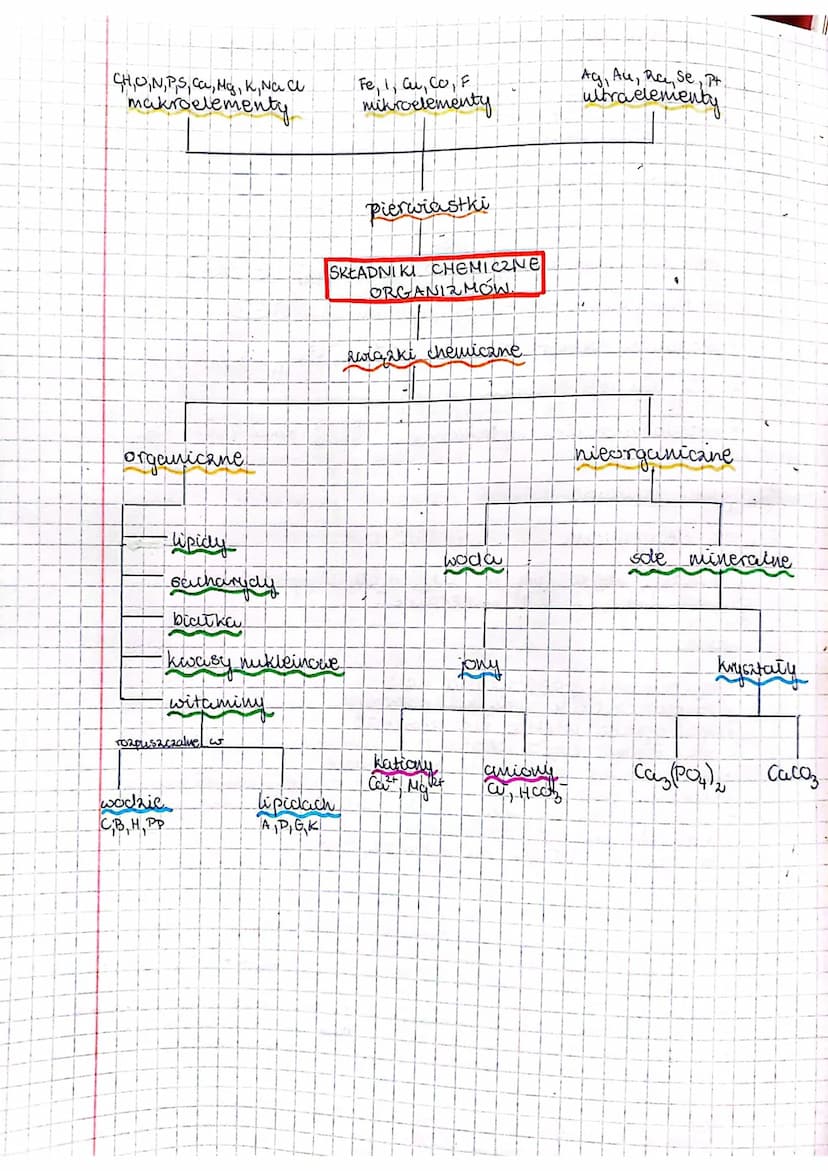 C,H,O,N,P,S,Ca,Mg,K,Na,Cl
makroelementy
Fe, I, Cu, Co, F
mikroelementy
Ag, Au, Ra, Se, Pt
ultraelementy
pierwiastki
SKŁADNIKI CHEMICZNE
ORGANIZMÓW.
związki chemiczne
organiczne
nieorganiczne
lipidy
sacharydy
białka
kwasy nukleinowe
witaminy
woda
sole mineralne
jony
kryształy
rozpuszczalne w
wodzie
C,B,H,PP
lipidach
A,D,E,K
kationy
Ca²⁺, Mg²⁺
aniony
Cl⁻, HCO₃⁻
Ca₃(PO₄)₂
CaCO₃